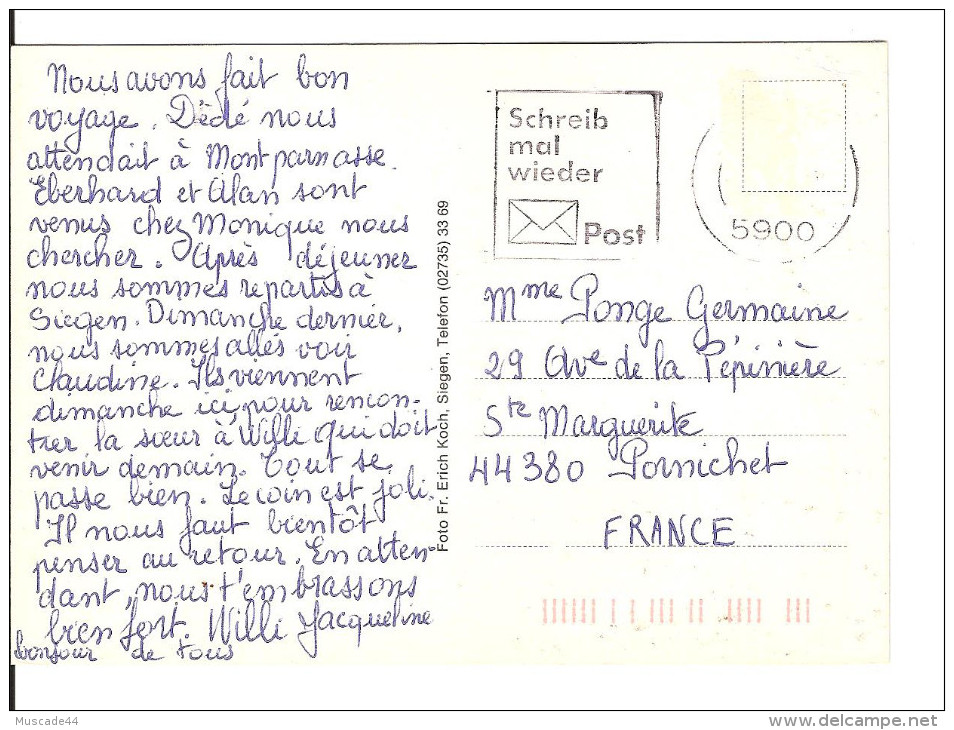 Nous avons fait bon
voyage. Dédé nous
attendait à Montparnasse.
Eberhard et Alan sont
venus chez Monique nous
chercher. Après déjeuner
nous sommes repartis à
Siegen. Dimanche dernier,
nous sommes allés voir
Claudine. Ils viennent
dimanche ici, pour rencon-
trer la sœur à Willi qui doit
venir demain. Tout se
passe bien. Le coin est joli.
Il nous faut bientôt
penser au retour. En atten-
dant, nous t'embrassons
bien fort. Willi Jacqueline
bonjour de tous
Foto Fr. Erich Koch, Siegen, Telefon (02735) 33 69
Schreib
mal
wieder
Post
5900
Mme Ponge Germaine
29 Ave de la Pépinière
Ste Marguerite
44380 Pornichet
FRANCE
Muscade44
delcampe.net